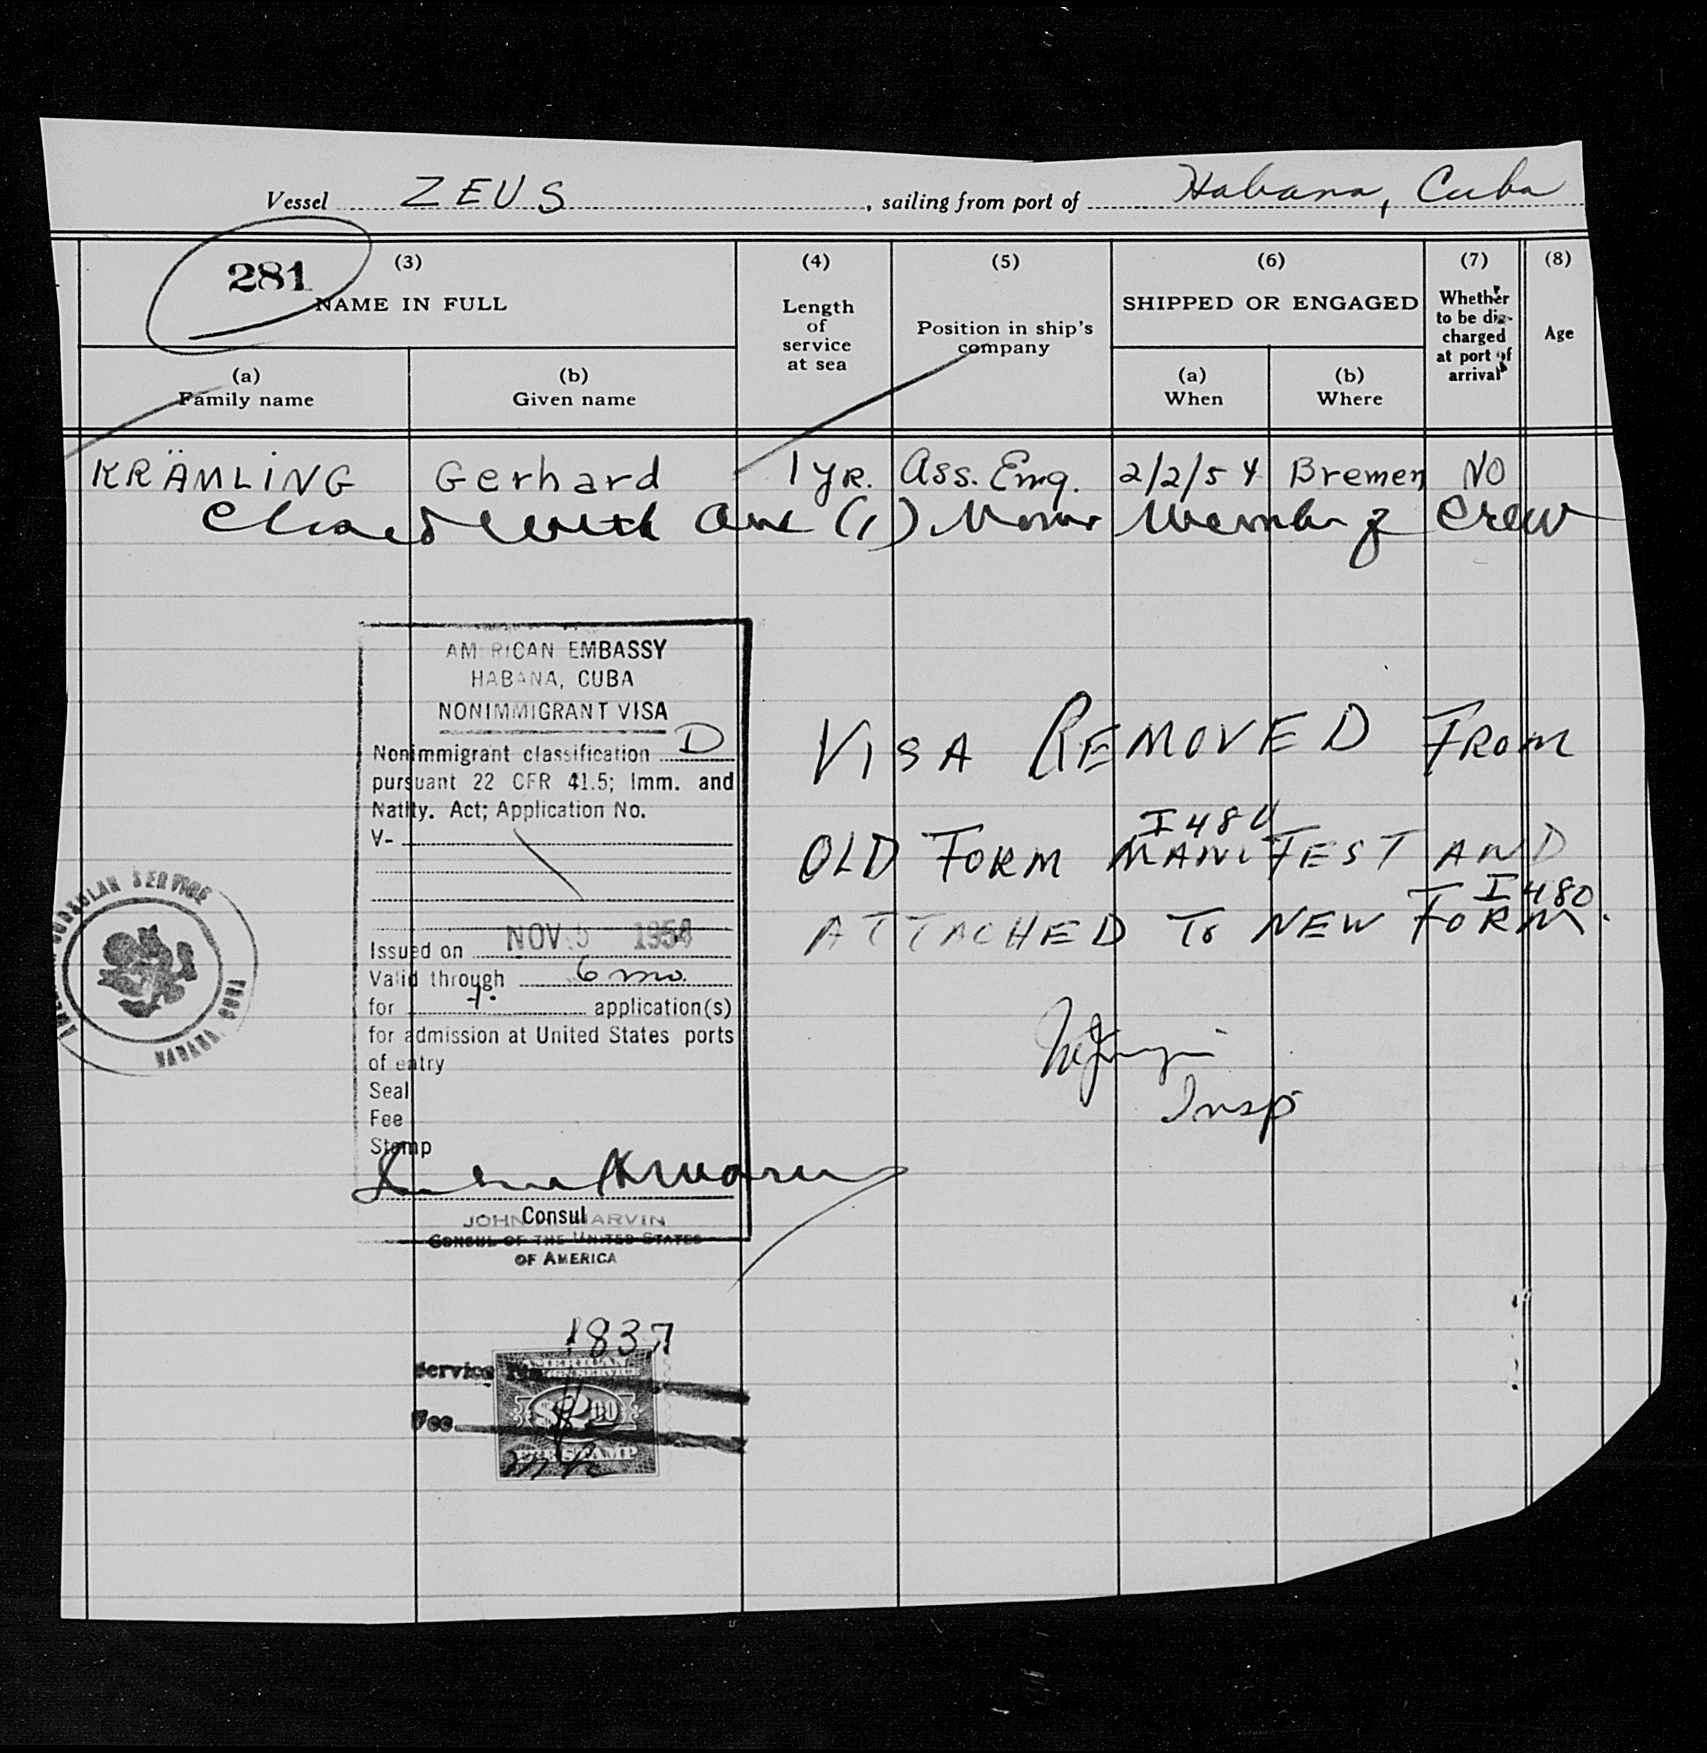 Vessel ZEUS, sailing from port of Habana, Cuba
281
(3) NAME IN FULL
(a) Family name
(b) Given name
(4) Length of service at sea
(5) Position in ship's company
(6) SHIPPED OR ENGAGED
(a) When
(b) Where
(7) Whether to be dis-charged at port of arrival
(8) Age
KRÄMLING Gerhard 1 yr. Ass. Eng. 2/2/54 Bremen NO
Closed with one (1) Member of Crew
AMERICAN EMBASSY
HABANA, CUBA
NONIMMIGRANT VISA
Nonimmigrant classification D
pursuant 22 CFR 41.5; Imm. and
Natlty. Act; Application No.
V-
Issued on NOV 5 1954
Valid through 6 mo.
for application(s)
for admission at United States ports
of entry
Seal
Fee
Stamp
Consul
JOHN MARVIN
CONSUL OF THE UNITED STATES
OF AMERICA
VISA REMOVED FROM
I 480
OLD FORM MANIFEST AND
I 480
ATTACHED TO NEW FORM.
Insp
CONSULAR SERVICE
HABANA
1837
Service No.
Fee
AMERICAN
SERVICE
$2.00
FEE STAMP